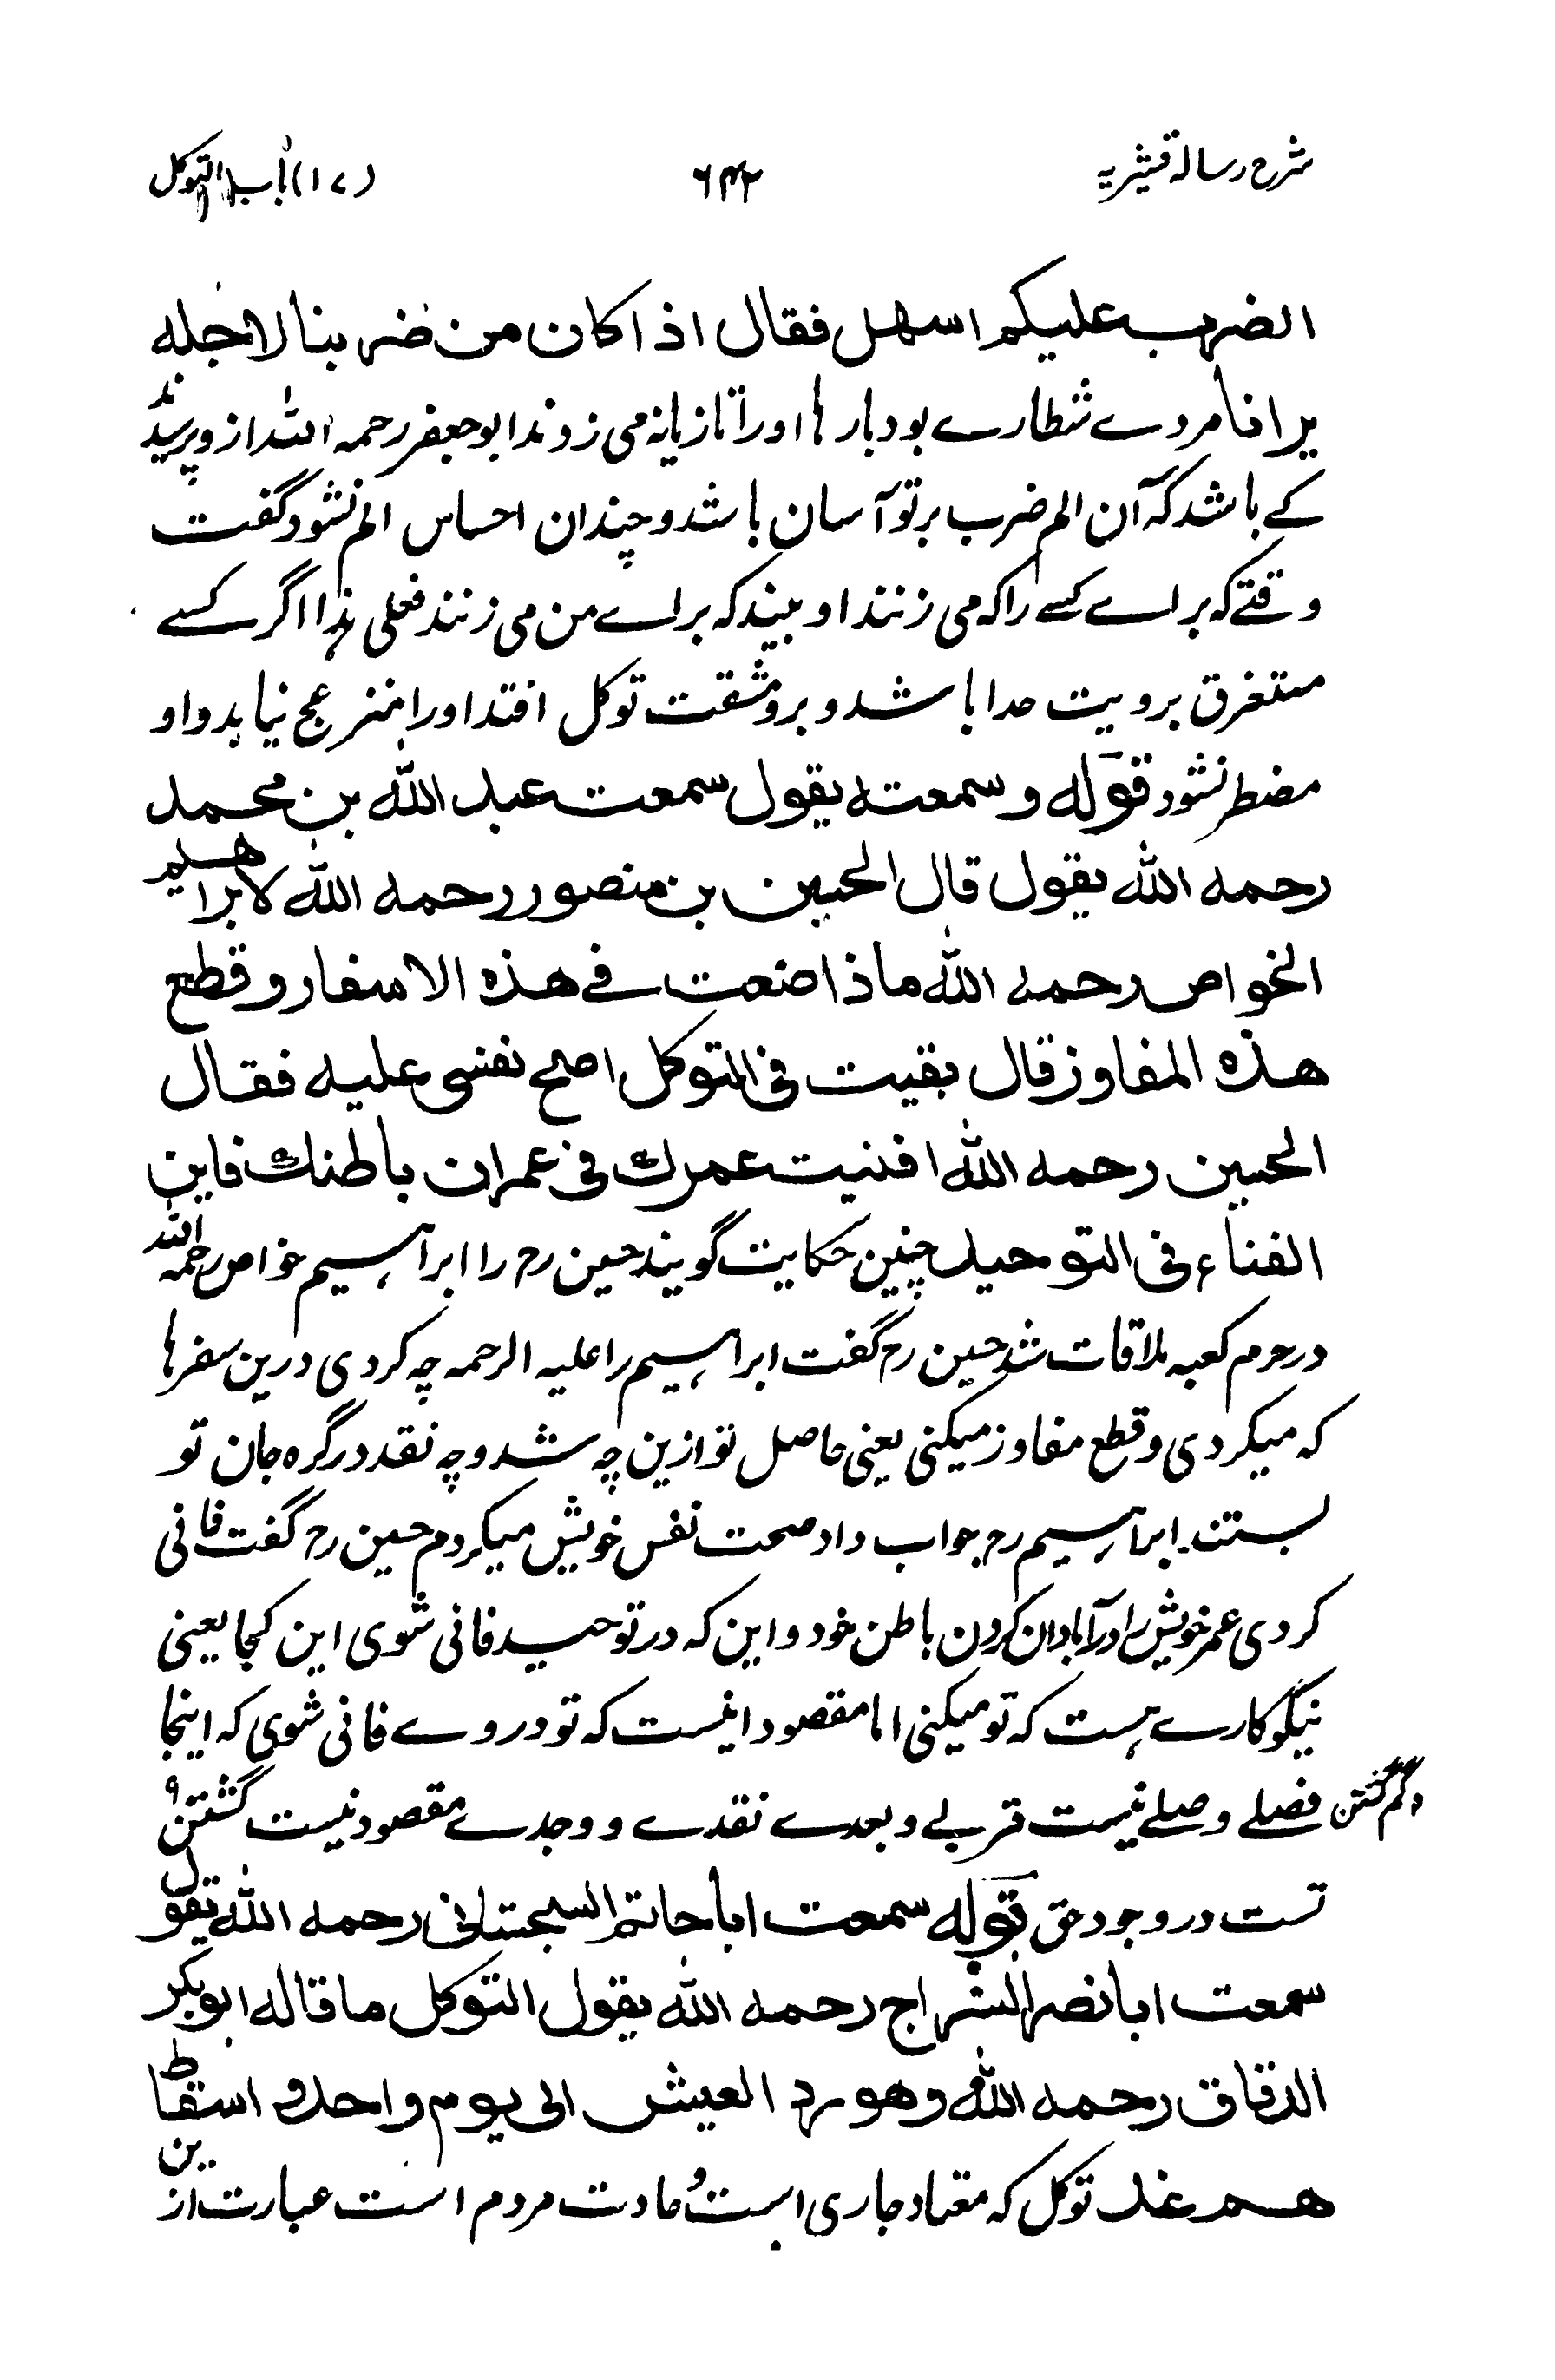 شرح رسالہ قشیریہ ۶۴۲ (۱۷) باب التوکل
الضرب علیکم اسهل فقال اذا کان من ضربنا لاجله
یرانا مردے شطارے بود بارہا اورا تازیانہ می زدند ابو جعفر رحمہ اللہ ازو پرسیدند
کے باشد کہ آن الم ضرب بر تو آسان باشد و چندان احساس الم نشود گفت
وقتے کہ براے کسے را کہ می زنند او بیند کہ براے من می زنند فعلی ہذا اگر کسے
مستغرق برویت خدا باشد و برو مشقت توکل افتد اورا منزعج نیابد و او
مضطر نشود قوله وسمعته یقول سمعت عبد الله بن محمد
رحمه الله یقول قال الحسین بن منصور رحمه الله لابراهیم
الخواص رحمه الله ماذا صنعت فی هذه الاسفار وقطع
هذه المفاوز قال بقیت فی التوکل اصحح نفسی علیه فقال
الحسین رحمه الله افنیت عمرك فی عمران باطنك فاین
الفناء فی التوحید چنین حکایت گویند حسین رح را ابراہیم خواص رحمہ اللہ
در حرم کعبہ ملاقات شد حسین رح گفت ابراہیم را علیہ الرحمہ چہ کردی درین سفرہا
کہ میکردی و قطع مفاوز میکنی یعنی حاصل تو ازین چہ شد و چہ نقد در گرہ جان تو
بستند ابراہیم رح جواب داد صحت نفس خویش میکردم حسین رح گفت فانی
کردی عمر خویش را در آبادان کردن باطن خود و این کہ در توحید فانی شوی این کجا یعنی
نیکو کارے ہست کہ تو میکنی اما مقصود اینست کہ تو در وے فانی شوی کہ اینجا
فصلے وصلے نیست قربے و بعدے نقدے و وجدے مقصود نیست گشتن و گم گشتن
تست در وجود حق قوله سمعت ابا حاتم السجستانی رحمه الله یقول
سمعت ابا نصر السراج رحمه الله یقول التوکل ما قاله ابوبکر
الدقاق رحمه الله وهو رد العیش الی یوم واحد و اسقاط
هم غد توکل کہ معتاد جاری است و عادت مردم است عبارت ازین